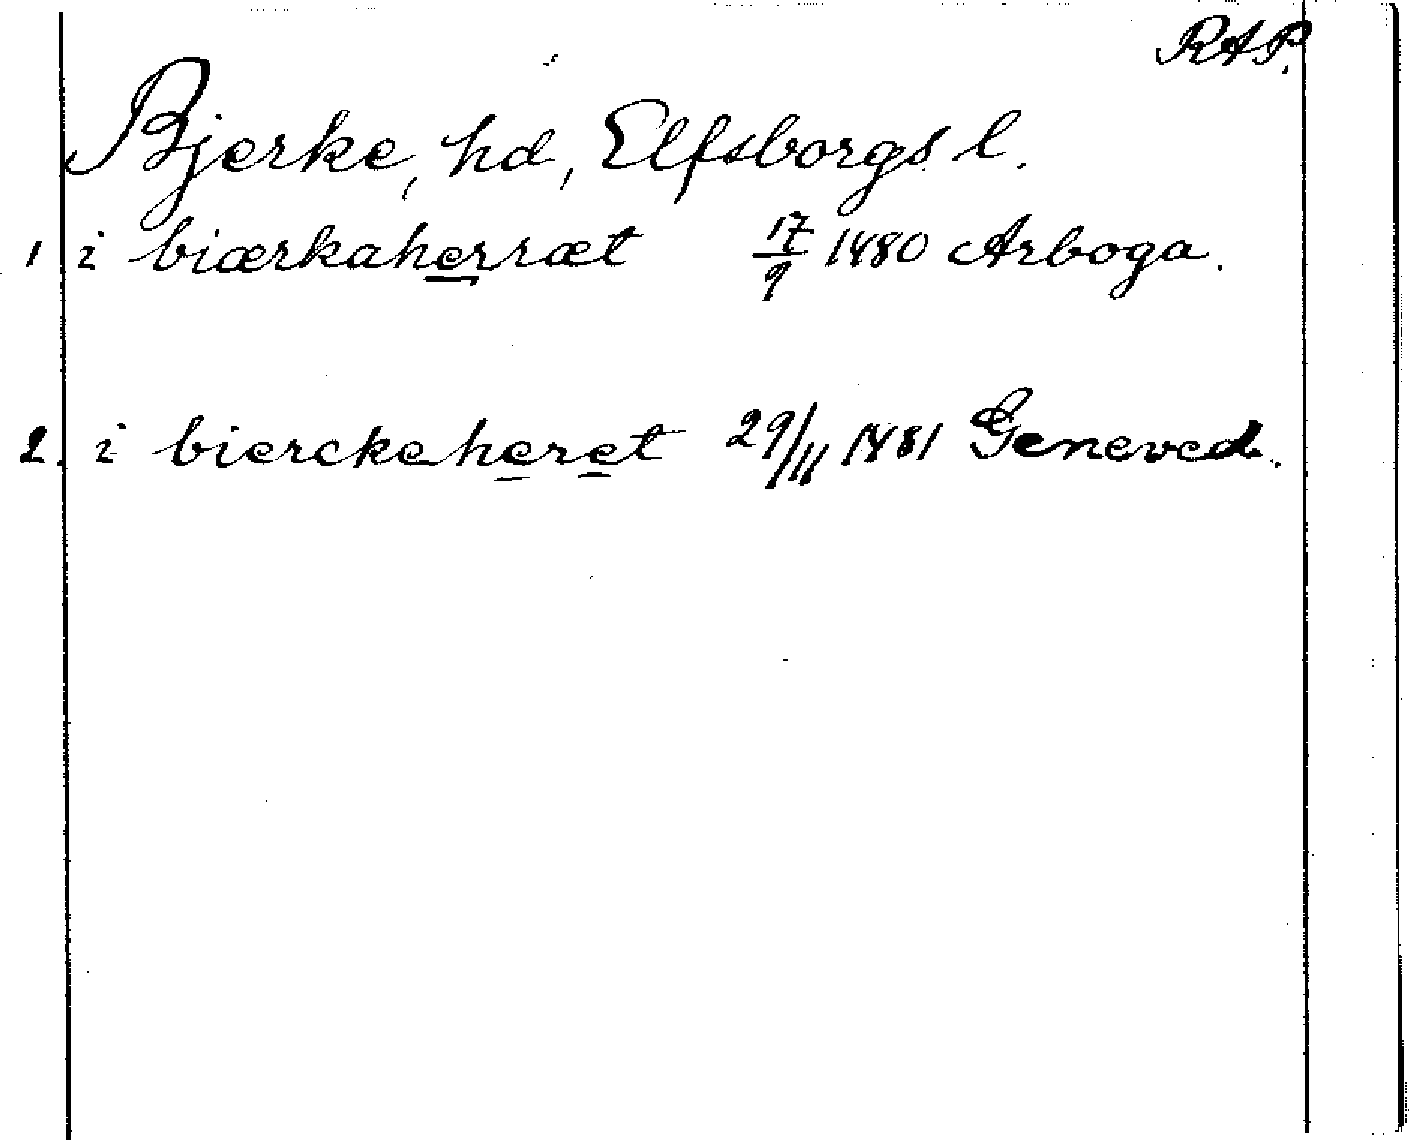 RAP.
Bjerke, hd, Elfsborgs l.
1 i biærkaherræt 17/9 1480 Arboga.
2. i bierckeheret 29/11 1481 Geneved.